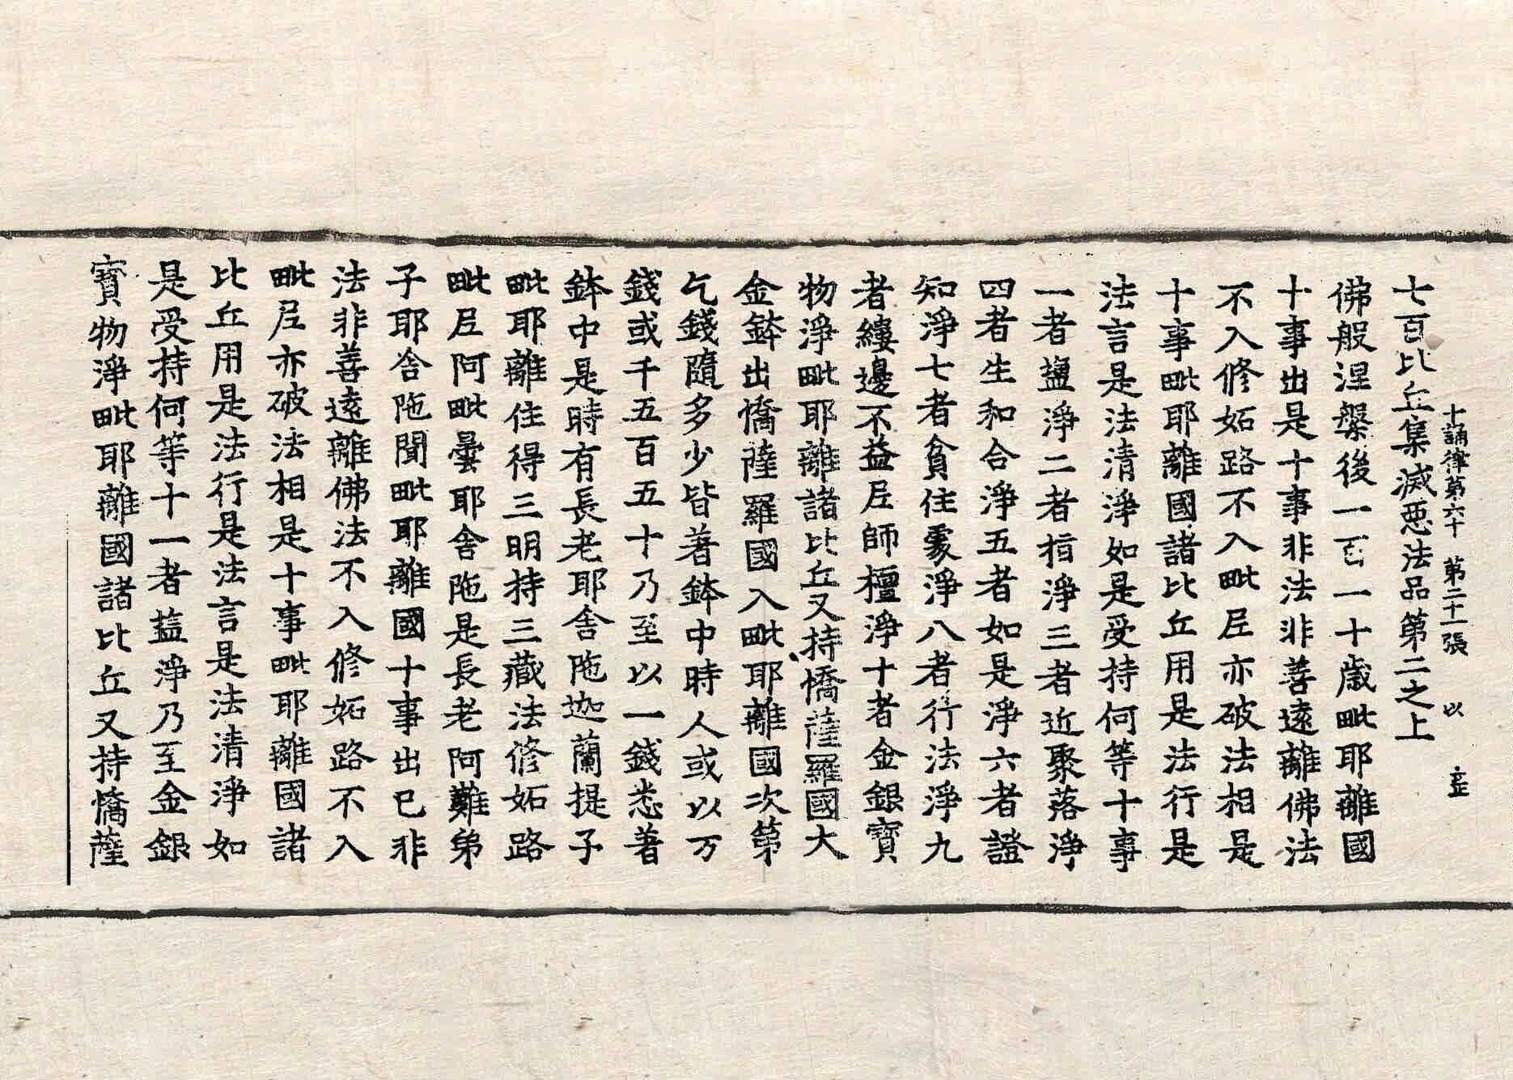 十誦律第六十 第二十一張 以
七百比丘集滅惡法品第二之上
佛般涅槃後一百一十歲毗耶離國
十事出是十事非法非善遠離佛法
不入修妬路不入毗尼亦破法相是
十事毗耶離國諸比丘用是法行是
法言是法清淨如是受持何等十事
一者鹽淨二者指淨三者近聚落淨
四者生和合淨五者如是淨六者證
知淨七者貧住處淨八者行法淨九
者縷邊不益尼師檀淨十者金銀寶
物淨毗耶離諸比丘又持憍薩羅國大
金鉢出憍薩羅國入毗耶離國次第
乞錢隨多少皆著鉢中時人或以万
錢或千五百五十乃至以一錢悉著
鉢中是時有長老耶舍陁迦蘭提子
毗耶離住得三明持三藏法修妬路
毗尼阿毗曇耶舍陁是長老阿難弟
子耶舍陁聞毗耶離國十事出已非
法非善遠離佛法不入修妬路不入
毗尼亦破法相是十事毗耶離國諸
比丘用是法行是法言是法清淨如
是受持何等十一者盐淨乃至金銀
寶物淨毗耶離國諸比丘又持憍薩